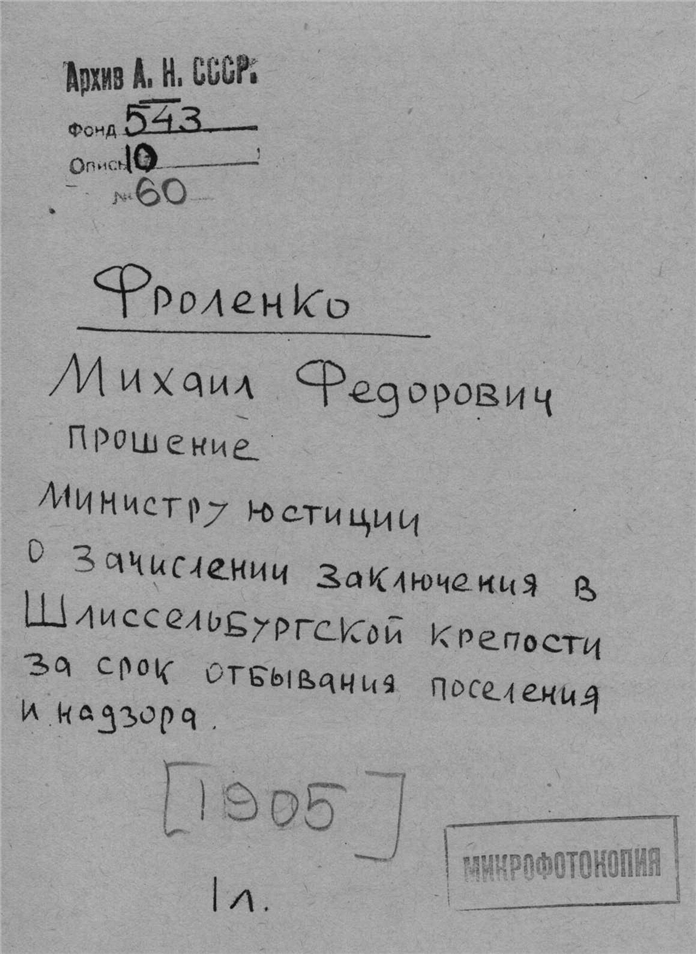 Архив А. Н. СССР.
Фонд 543
Опись 10
№ 60
Фроленко
Михаил Федорович
прошение
министру юстиции
о зачислении заключения в
Шлиссельбургской крепости
за срок отбывания поселения
и надзора.
[1905]
1 л.
МИКРОФОТОКОПИЯ